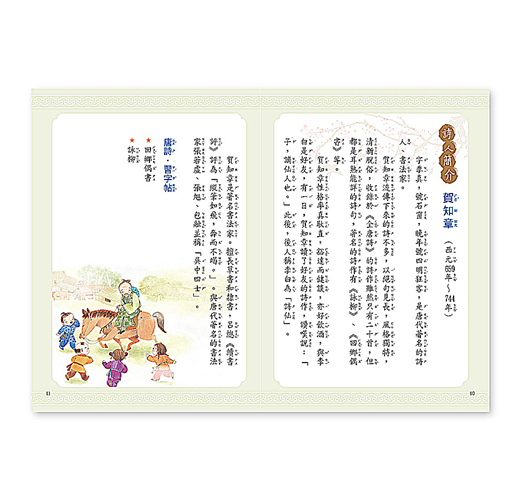 詩人簡介
賀知章(西元659年~744年)
字季真，號石窗，晚年號四明狂客，是唐代著名的詩
人、書法家。
賀知章流傳下來的詩不多，以絕句見長，風格獨特，
清新脫俗，收錄於《全唐詩》的詩作雖然只有二十首，但
都是耳熟能詳的詩句，著名的詩作有《詠柳》、《回鄉偶
書》等。
賀知章性格率真耿直，豁達而健談，亦好飲酒，與李
白是好友，有一日，賀知章讀了好友的詩作，讚嘆說：「
子，謫仙人也。」此後，後人稱李白為「詩仙」。
賀知章是著名書法家。擅長草書和隸書，呂總《續書
評》評為「縱筆如飛，奔而不竭。」。與唐代著名的書法
家張若虛、張旭、包融並稱「吳中四士」。
唐詩・習字帖
★ 回鄉偶書
★ 詠柳
10
11